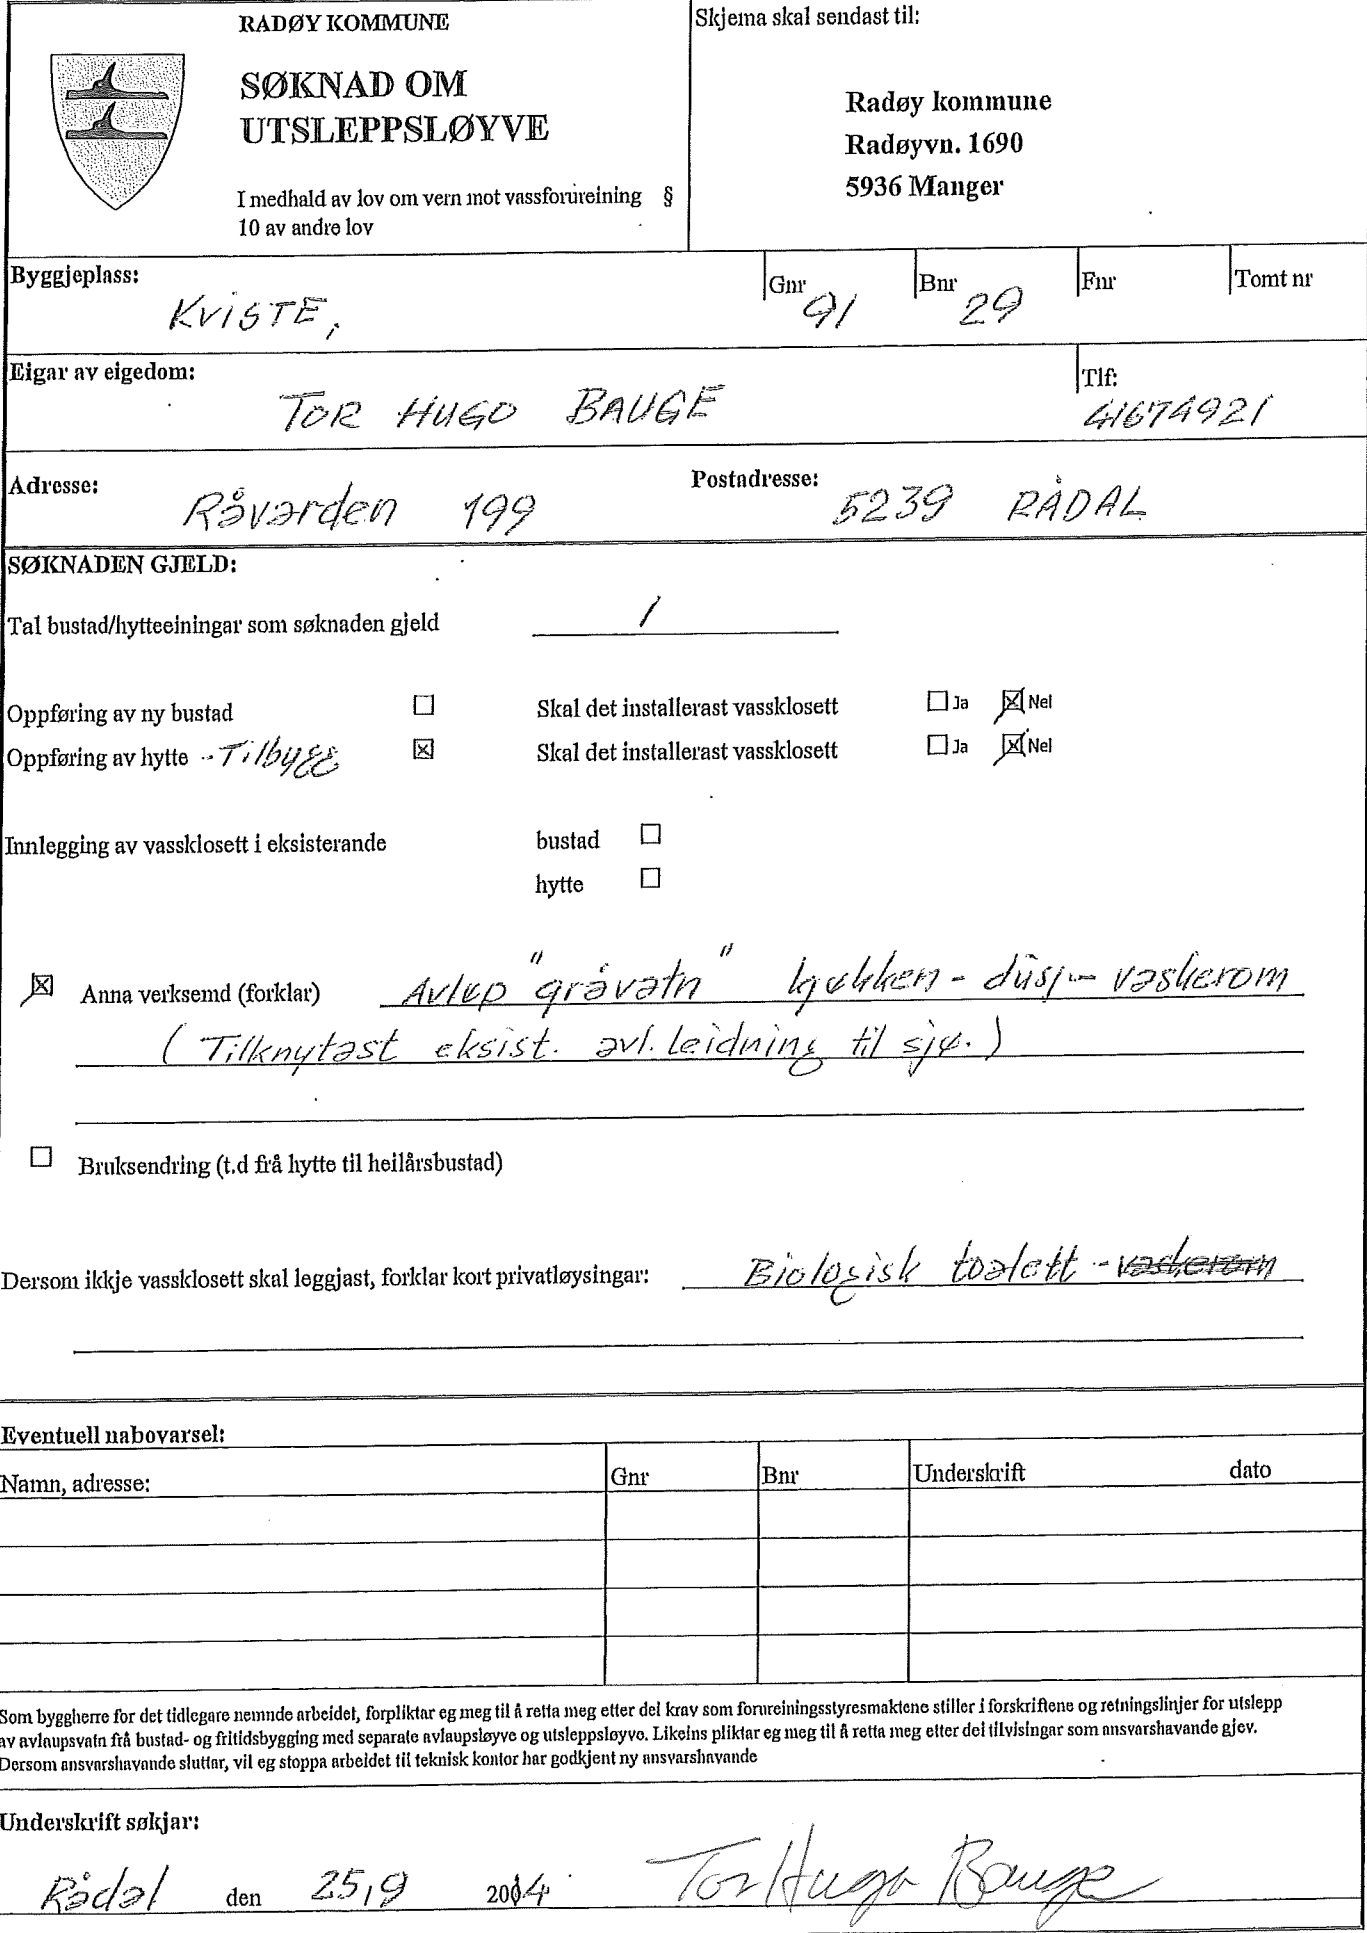 RADØY KOMMUNE
SØKNAD OM
UTSLEPPSLØYVE
I medhald av lov om vern mot vassforureining §
10 av andre lov
Skjema skal sendast til:
Radøy kommune
Radøyvn. 1690
5936 Manger
Byggjeplass: KVISTE, Gnr 91 Bnr 29 Fnr Tomt nr
Eigar av eigedom: TOR HUGO BAUGE Tlf: 41674921
Adresse: Råvarden 199 Postadresse: 5239 RÅDAL
SØKNADEN GJELD:
Tal bustad/hytteeiningar som søknaden gjeld 1
Oppføring av ny bustad ☐ Skal det installerast vassklosett ☐ Ja ☒ Nei
Oppføring av hytte - Tilbygg ☒ Skal det installerast vassklosett ☐ Ja ☒ Nei
Innlegging av vassklosett i eksisterande bustad ☐
hytte ☐
☒ Anna verksemd (forklar) Avløp "gråvatn" kjøkken - dusj - vaskerom
(Tilknytast eksist. avl. leidning til sjø.)
☐ Bruksendring (t.d frå hytte til heilårsbustad)
Dersom ikkje vassklosett skal leggjast, forklar kort privatløysingar: Biologisk toalett - vaskerom
Eventuell nabovarsel:
Namn, adresse: Gnr Bnr Underskrift dato
Som byggherre for det tidlegare nemnde arbeidet, forpliktar eg meg til å retta meg etter dei krav som forureiningsstyresmaktene stiller i forskriftene og retningslinjer for utslepp
av avlaupsvatn frå bustad- og fritidsbygging med separate avlaupsløyve og utsleppsløyve. Likeins pliktar eg meg til å retta meg etter dei tilvisingar som ansvarshavande gjev.
Dersom ansvarshavande sluttar, vil eg stoppa arbeidet til teknisk kontor har godkjent ny ansvarshavande
Underskrift søkjar:
Rådal den 25,9 2014 Tor Hugo Bauge